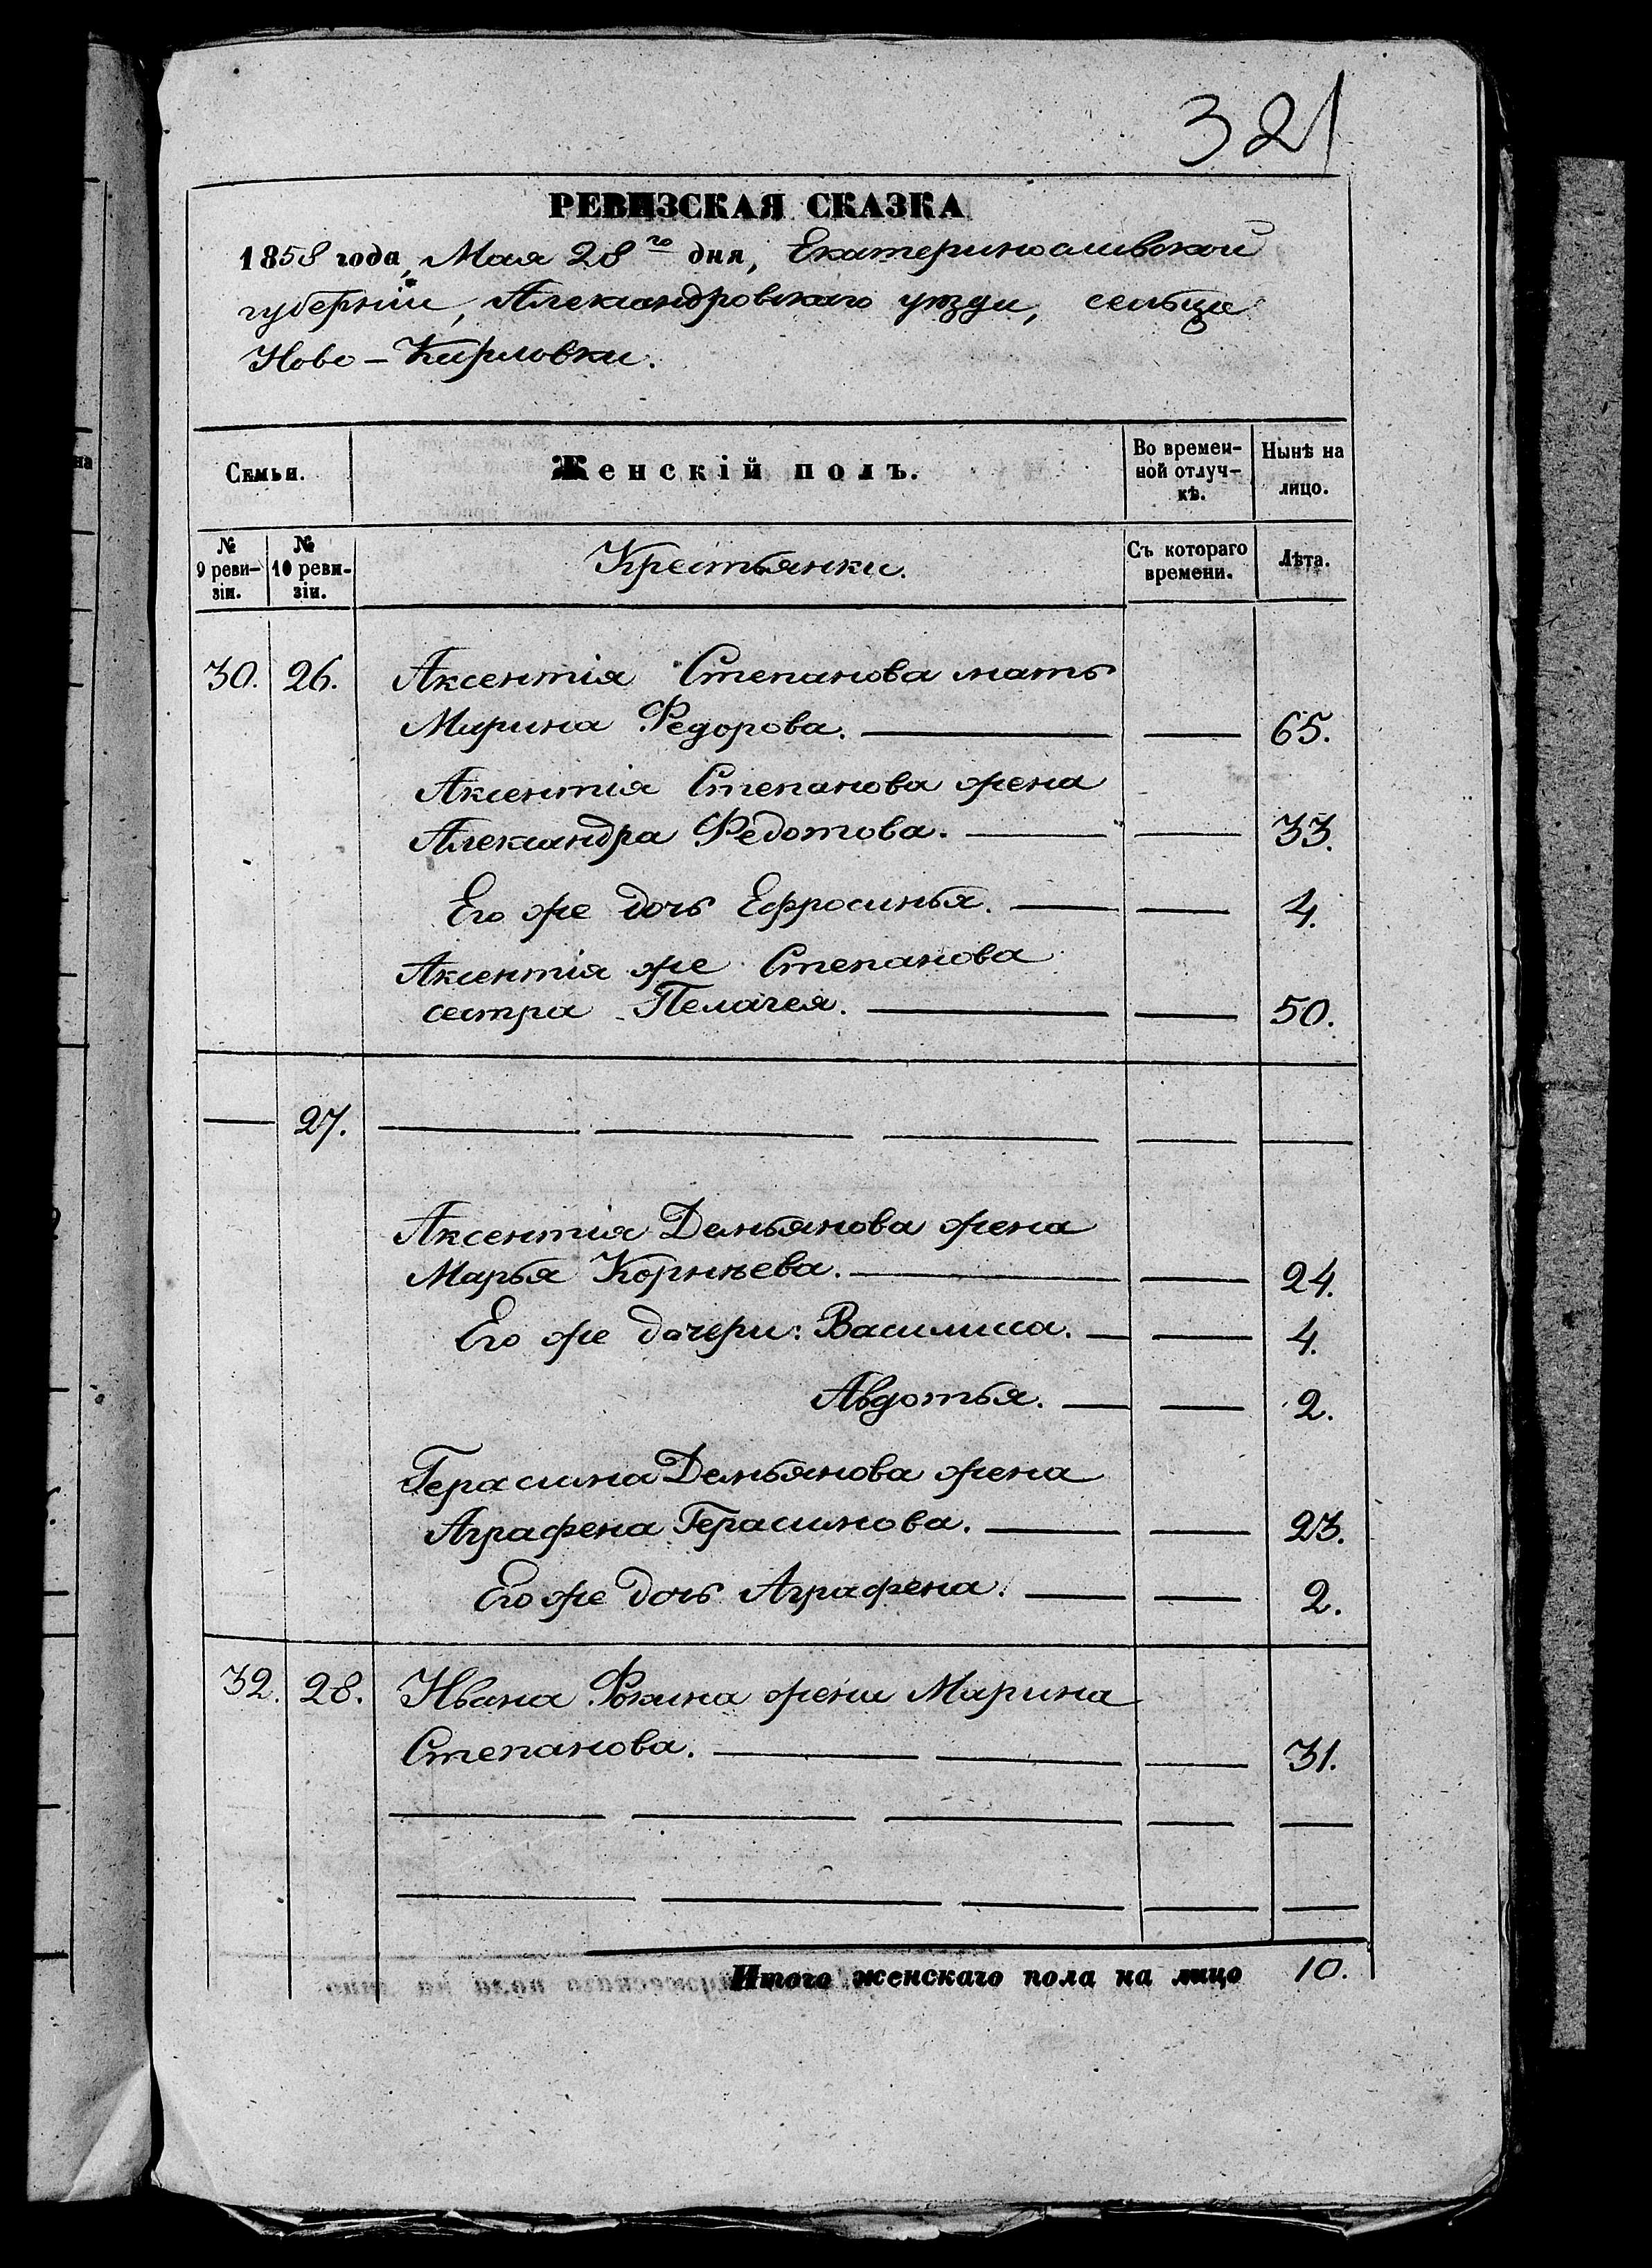 321
РЕВИЗСКАЯ СКАЗКА
1858 года, Мая 28го дня, Екатеринославской
губерніи, Александровскаго уѣзда, сельца
Ново-Карловки.
Семьи.
Женскій полъ.
Во времен-
ной отлуч-
кѣ.
Нынѣ на
лицо.
№
9 реви-
зіи.
№
10 реви-
зіи.
Крестьянки.
Съ котораго
времени.
Лѣта.
30. 26. Аксентія Степанова мать
Марина Федорова. — — 65.
Аксентія Степанова жена
Александра Федотова. — — 33.
Его же дочь Ефросинья. — — 4.
Аксентія же Степанова
сестра Пелагея. — — 50.
— 27. — — — — —
Аксентія Демьянова жена
Марья Корнѣева. — — 24.
Его же дочери: Василиса. — — 4.
Авдотья. — — 2.
Герасима Демьянова жена
Аграфена Герасимова. — — 23.
Его же дочь Аграфена. — — 2.
32. 28. Ивана Фокина жена Марина
Степанова. — — — 31.
— — — — —
— — — — —
Итого женскаго пола на лицо 10.